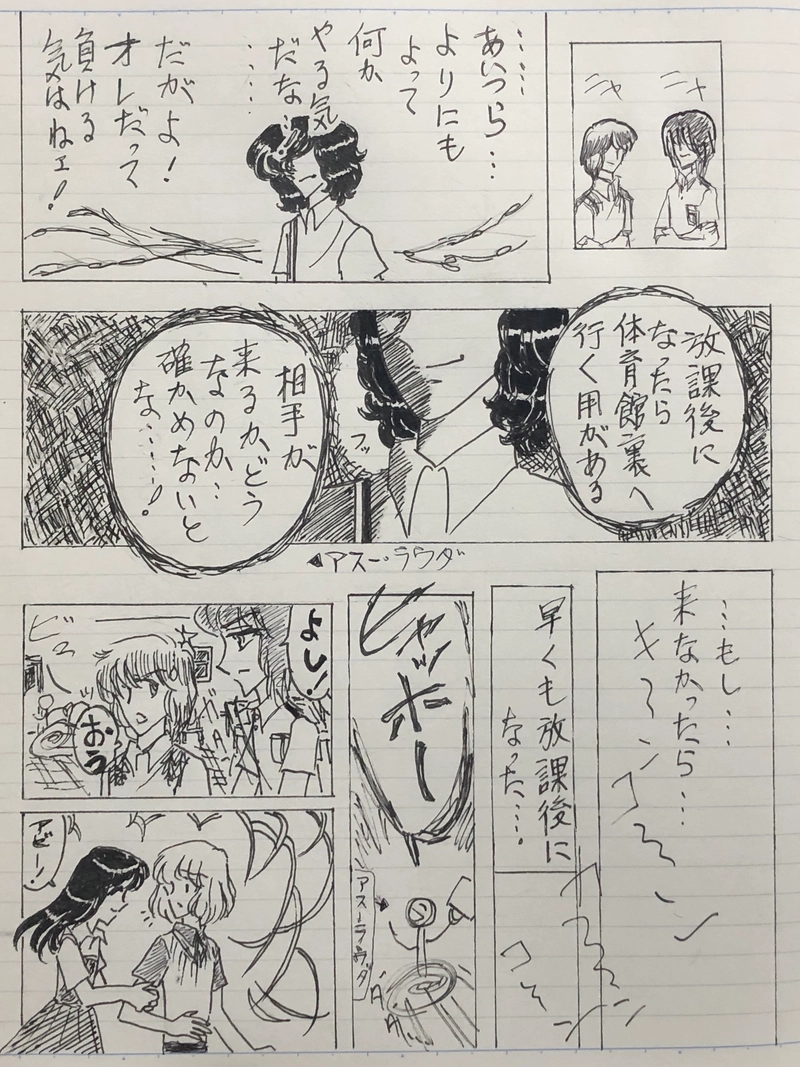 ニヤ
ニヤ
……
あいつら…
よりにも
よって
何か
やる気
だな…
……
だがよ！
オレだって
負ける
気はねェ！
放課後に
なったら
体育館裏へ
行く用がある
フッ
相手が
来るかどう
なのか…
確かめないと
な……！
◀アスー・ラウダ
…もし…
来なかったら…
キーンコーン
カーンコーン
早くも放課後に
なった…。
ヒャッホー
アスー・ラウダ
よし！
ビュー
おう
アビー！